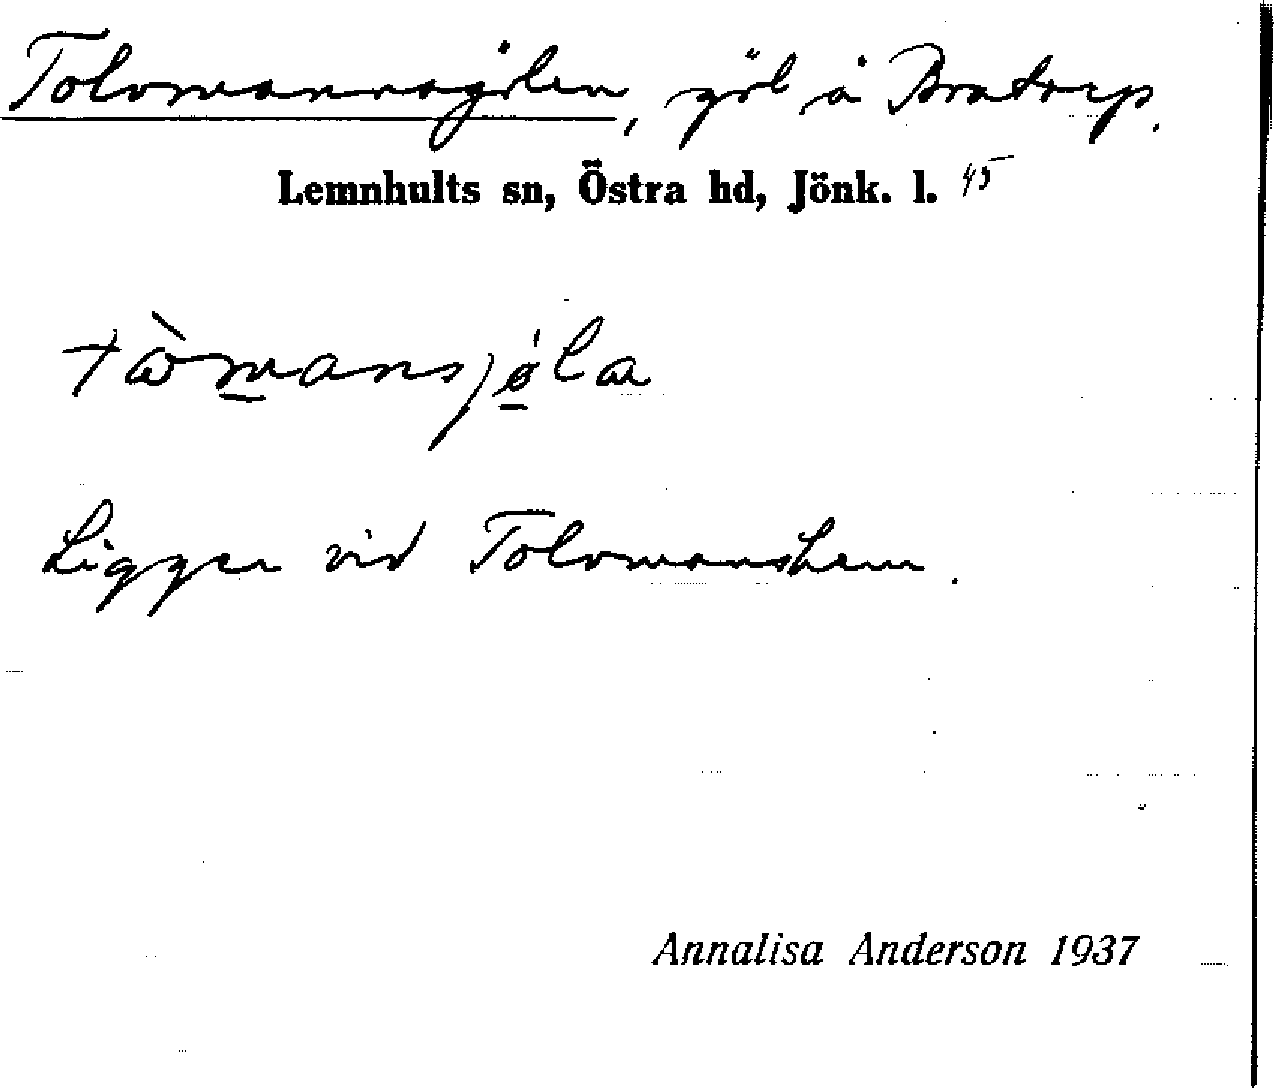 Tolvmannagölen, göl å Bratorp.
Lemnhults sn, Östra hd, Jönk. l. 45
Ligger vid Tolvmanshem.
Annalisa Anderson 1937